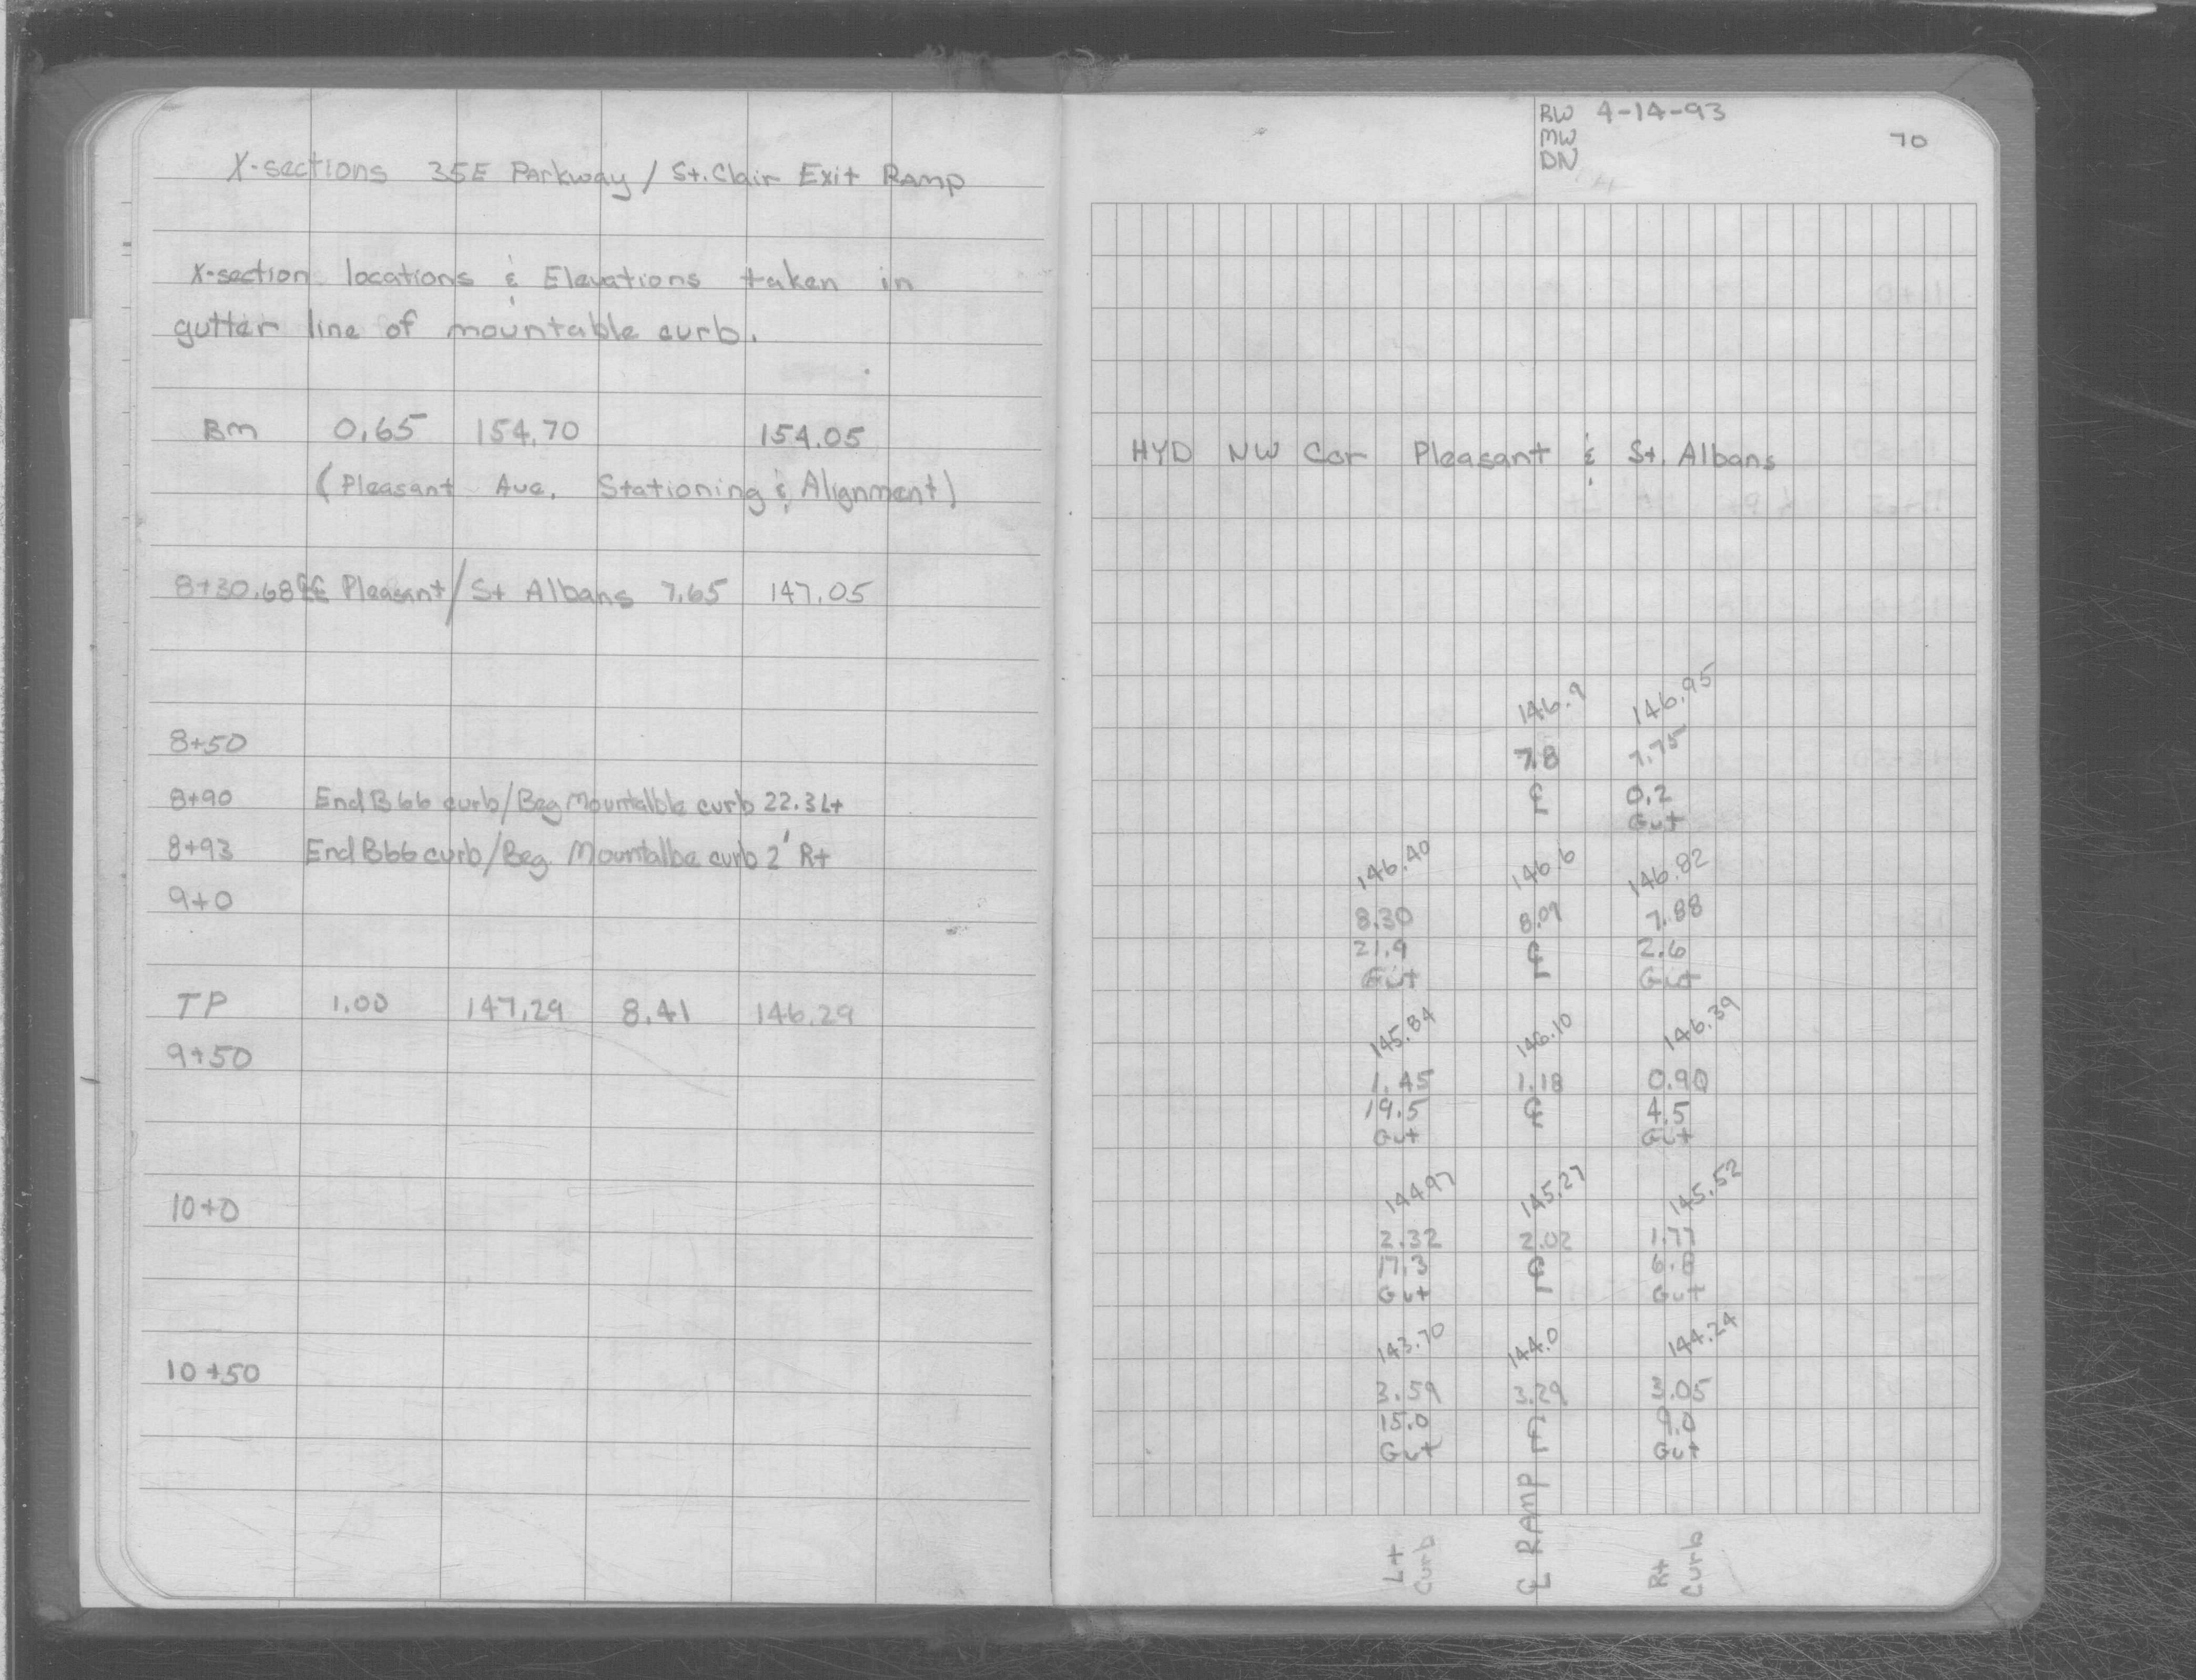 X-sections 35E Parkway / St. Clair Exit Ramp
X-section locations & Elevations taken in
gutter line of mountable curb.
BM 0.65 154.70 154.05
(Pleasant Ave. Stationing & Alignment)
8+30.68 ℄℄ Pleasant/St Albans 7.65 147.05
8+50
8+90 End B66 curb/Beg Mountalble curb 22.3 Lt
8+93 End B66 curb/Beg. Mountalbe curb 2' Rt
9+0
TP 1.00 147.29 8.41 146.29
9+50
10+0
10+50
RW 4-14-93
MW
DN
70
HYD NW Cor Pleasant & St. Albans
146.9 146.95
7.8 7.75
℄ 0.2
Gut
146.40 146.6 146.82
8.30 8.09 7.88
21.9 ℄ 2.6
Gut Gut
145.84 146.10 146.39
1.45 1.18 0.90
19.5 ℄ 4.5
Gut Gut
144.97 145.27 145.52
2.32 2.02 1.77
17.3 ℄ 6.8
Gut Gut
143.70 144.0 144.24
3.59 3.29 3.05
15.0 ℄ 9.0
Gut Gut
Lt Curb
℄ Ramp
Rt Curb